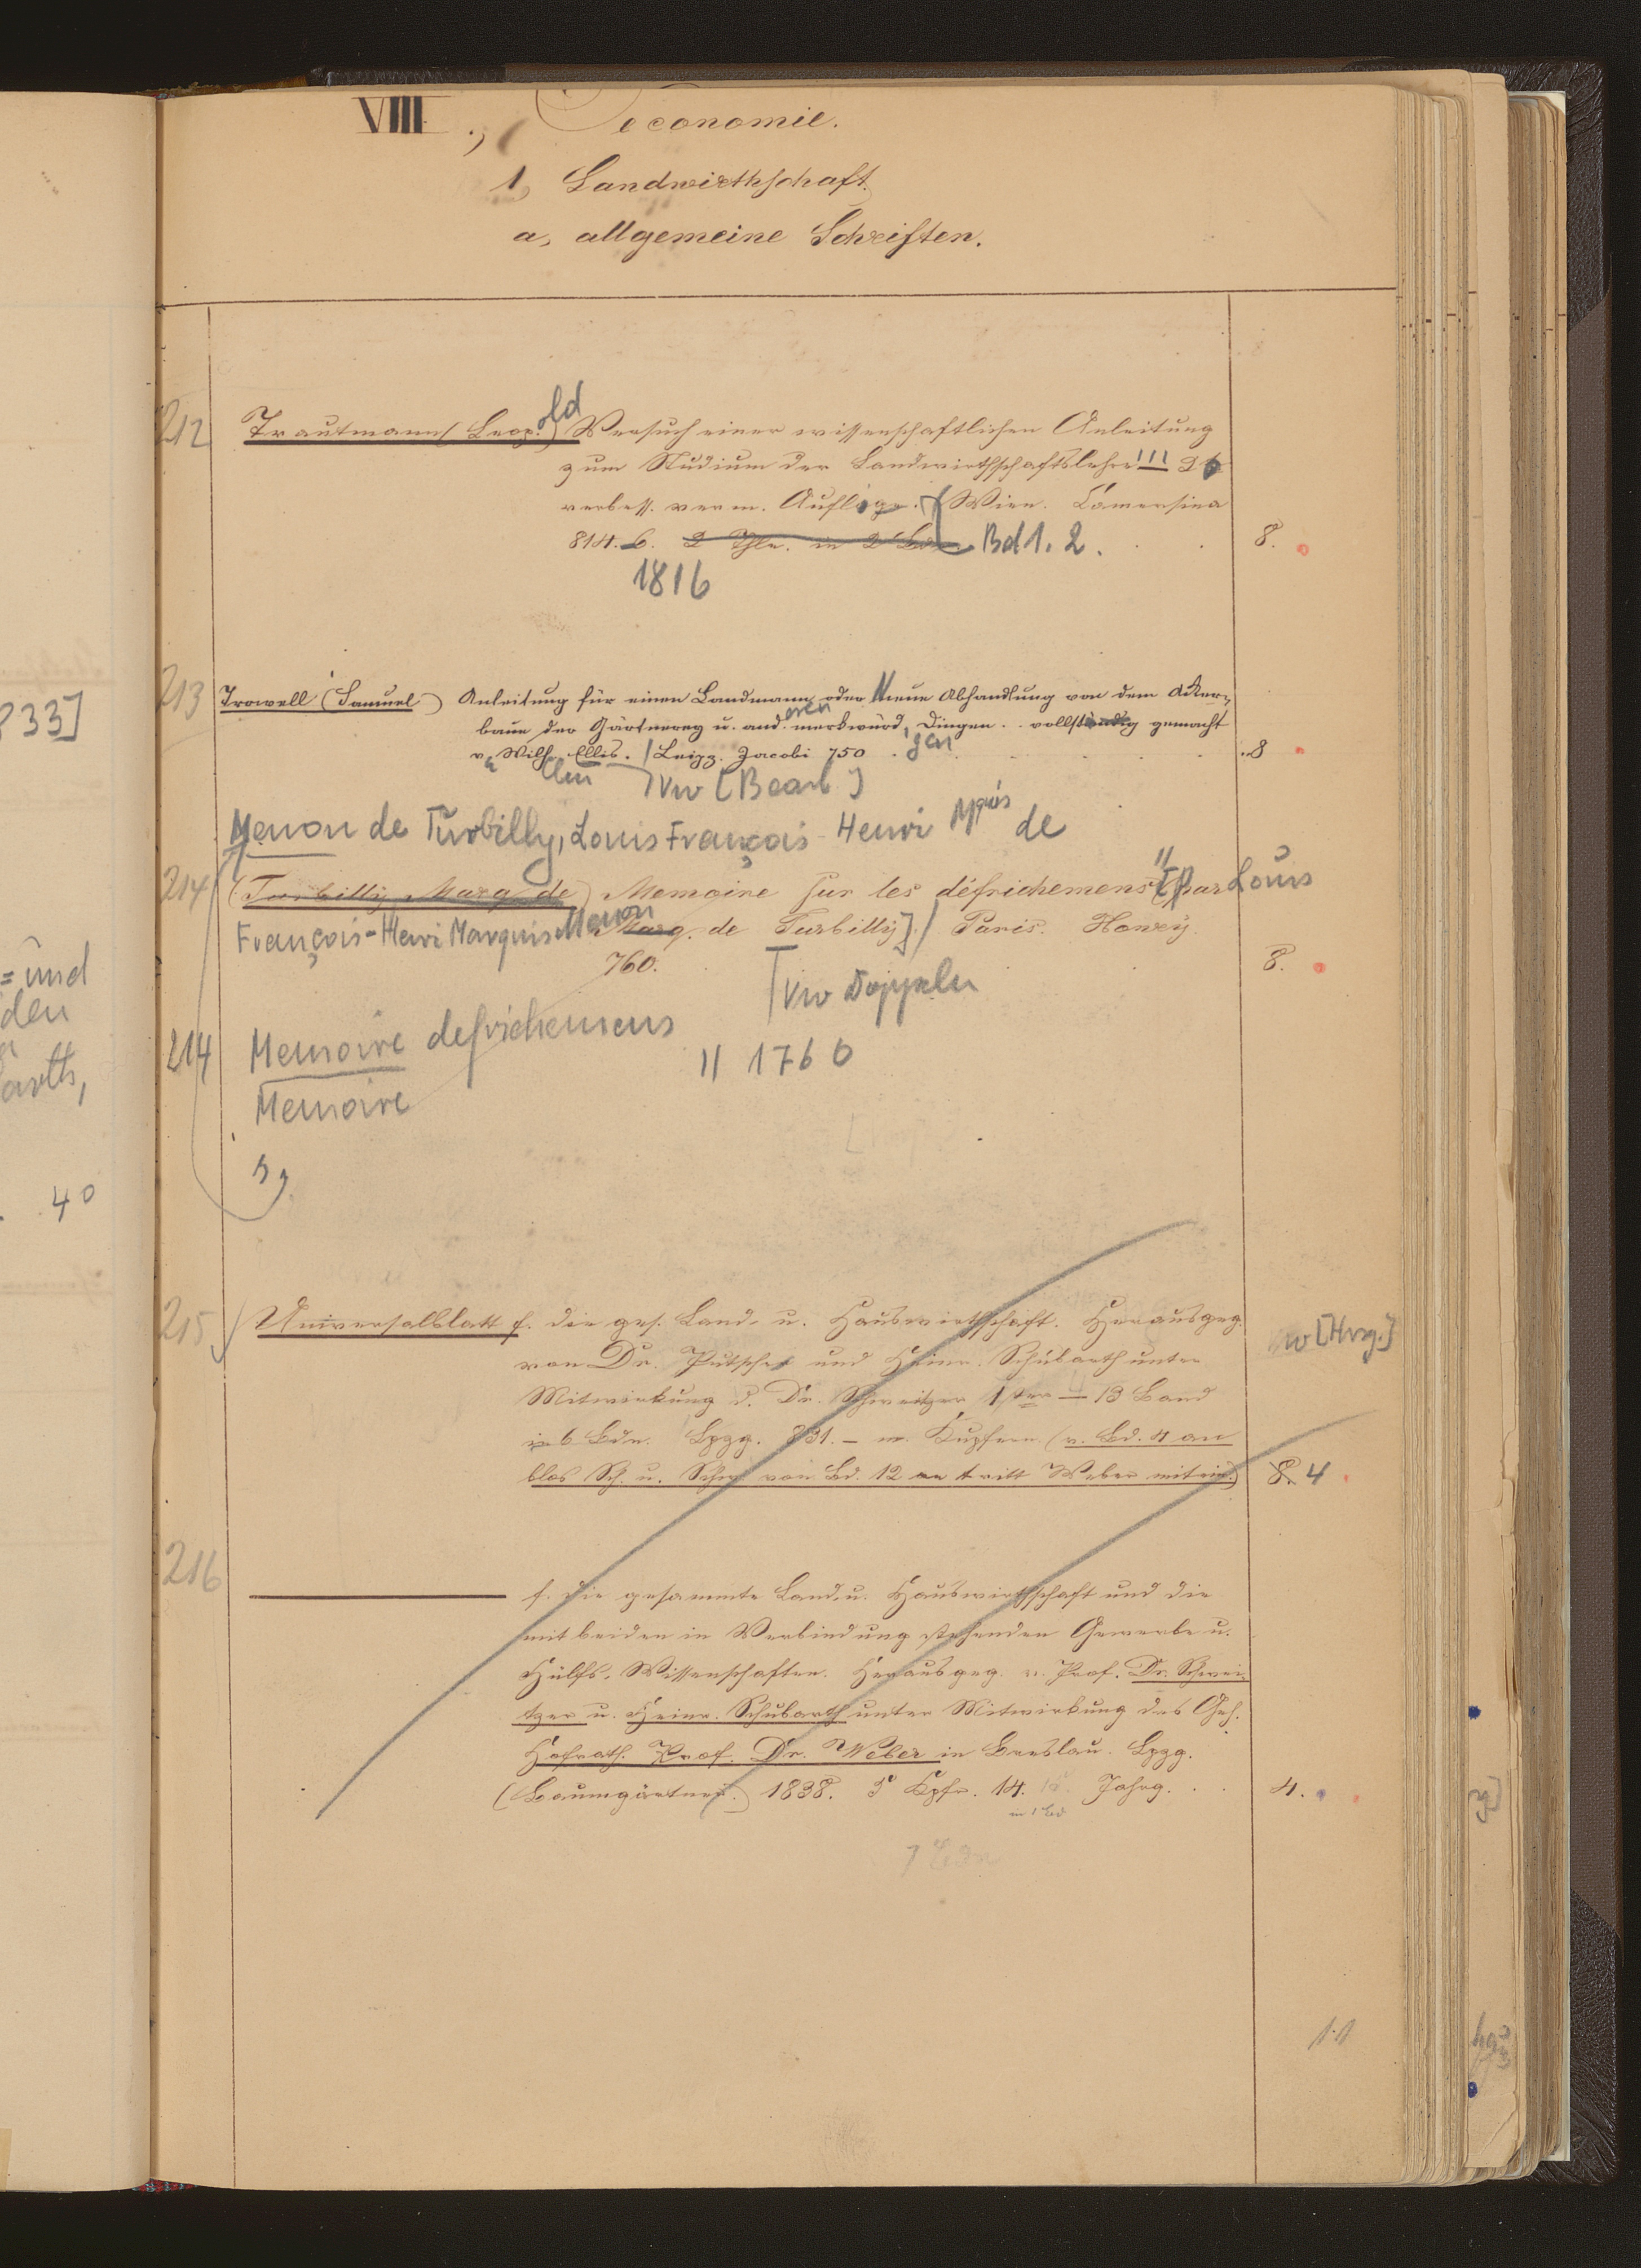 VIII., Oeconomie.
1, Landwirthschaft.
a, allgemeine Schriften.
212 Trautmann (Leop.old) Versuch einer wissenschaftlichen Anleitung
zum Studium der Landwirthschaftslehre III 2
verbess. verm. Auflage. Wien. Camersina
814.-6. 2 Thle. in 2 Bdn Bd 1. 2. 8.
1816
213 Trowell (Samuel) Anleitung für einen Landmann oder Neue Abhandlung von dem Acker-
baue der Gärtnerey u. and.eren merkwürd.gen Dingen .. vollständig gemacht
v. Wilh. Ellis. / Leipz. Jacobi 750 .8
Vw [Bearb]
Menon de Turbilly, Louis François-Henri Mquis de
214 (Turbilly Marq. de) Memoire sur les défrichemens [par Louis
François-Henri Marquis Menon Marq. de Turbilly] / Paris. Howry.
760. 8.
Vw Doppeln
214 Memoire defrichemens
11 1760
Memoire
215 Universalblatt f. die ges. Land- u. Hauswirthschaft. Herausgeg. Vw [Hrsg.]
von Dr. Putsche und Heinr. Schubarth unter
Mitwirkung d. Dr. Schweitzer 1ster – 13 Band
in 6 Bdn. Lpzg. 831. – m. Kupfern (v. Bd. 4 an
blos Sch. u. Schw. von Bd. 12 an tritt Weber mit ein.) 8. 4
216 ——— f. die gesammte Land- u. Hauswirthschaft und die
mit beiden in Verbindung stehenden Gewerbe u.
Hülfs-Wissenschaften. Herausgeg. v. Prof. Dr. Schwei-
tzer u. Heinr. Schubarth unter Mitwirkung des Geh.
Hofrath. Prof. Dr. Weber in Breslau. Lpzg.
(Baumgärtner.) 1838. Kpfr. 14. Jahrg. 4.
in 1 Bd
11
233]
= und
den
arth,
40